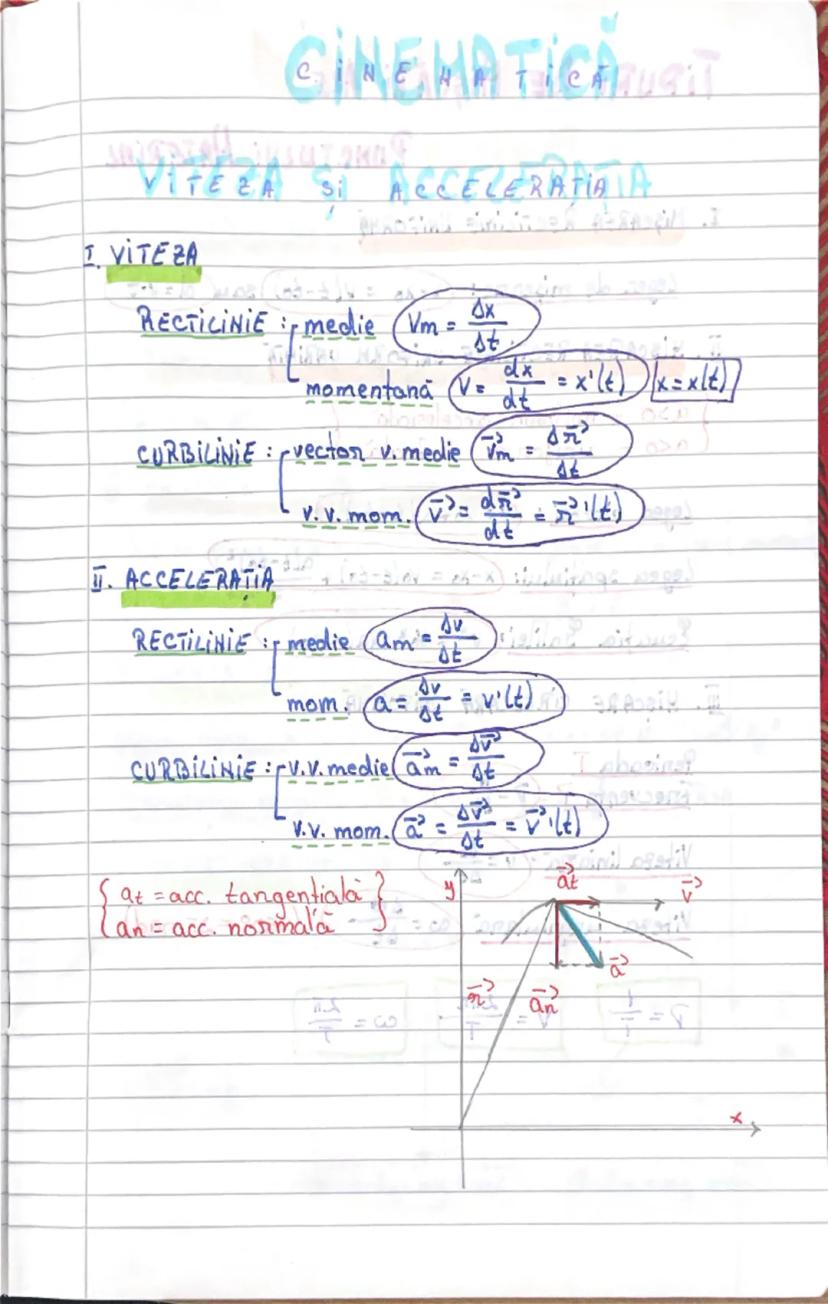 CINEMATICĂ
VITEZA ȘI ACCELERAȚIA
I. VITEZA
RECTILINIE : medie Vm = Δx/Δt
momentană V = dx/dt = x'(t) x = x(t)
CURBILINIE : vector v. medie v⃗m = Δr⃗/Δt
v.v. mom. v⃗ = dr⃗/dt = r⃗'(t)
II. ACCELERAȚIA
RECTILINIE : medie am = Δv/Δt
mom. a = Δv/Δt = v'(t)
CURBILINIE : v.v. medie a⃗m = Δv⃗/Δt
v.v. mom. a⃗ = Δv⃗/Δt = v⃗'(t)
{ at = acc. tangențială }
{ an = acc. normală }
y a⃗t v⃗
a⃗
r⃗ a⃗n
x